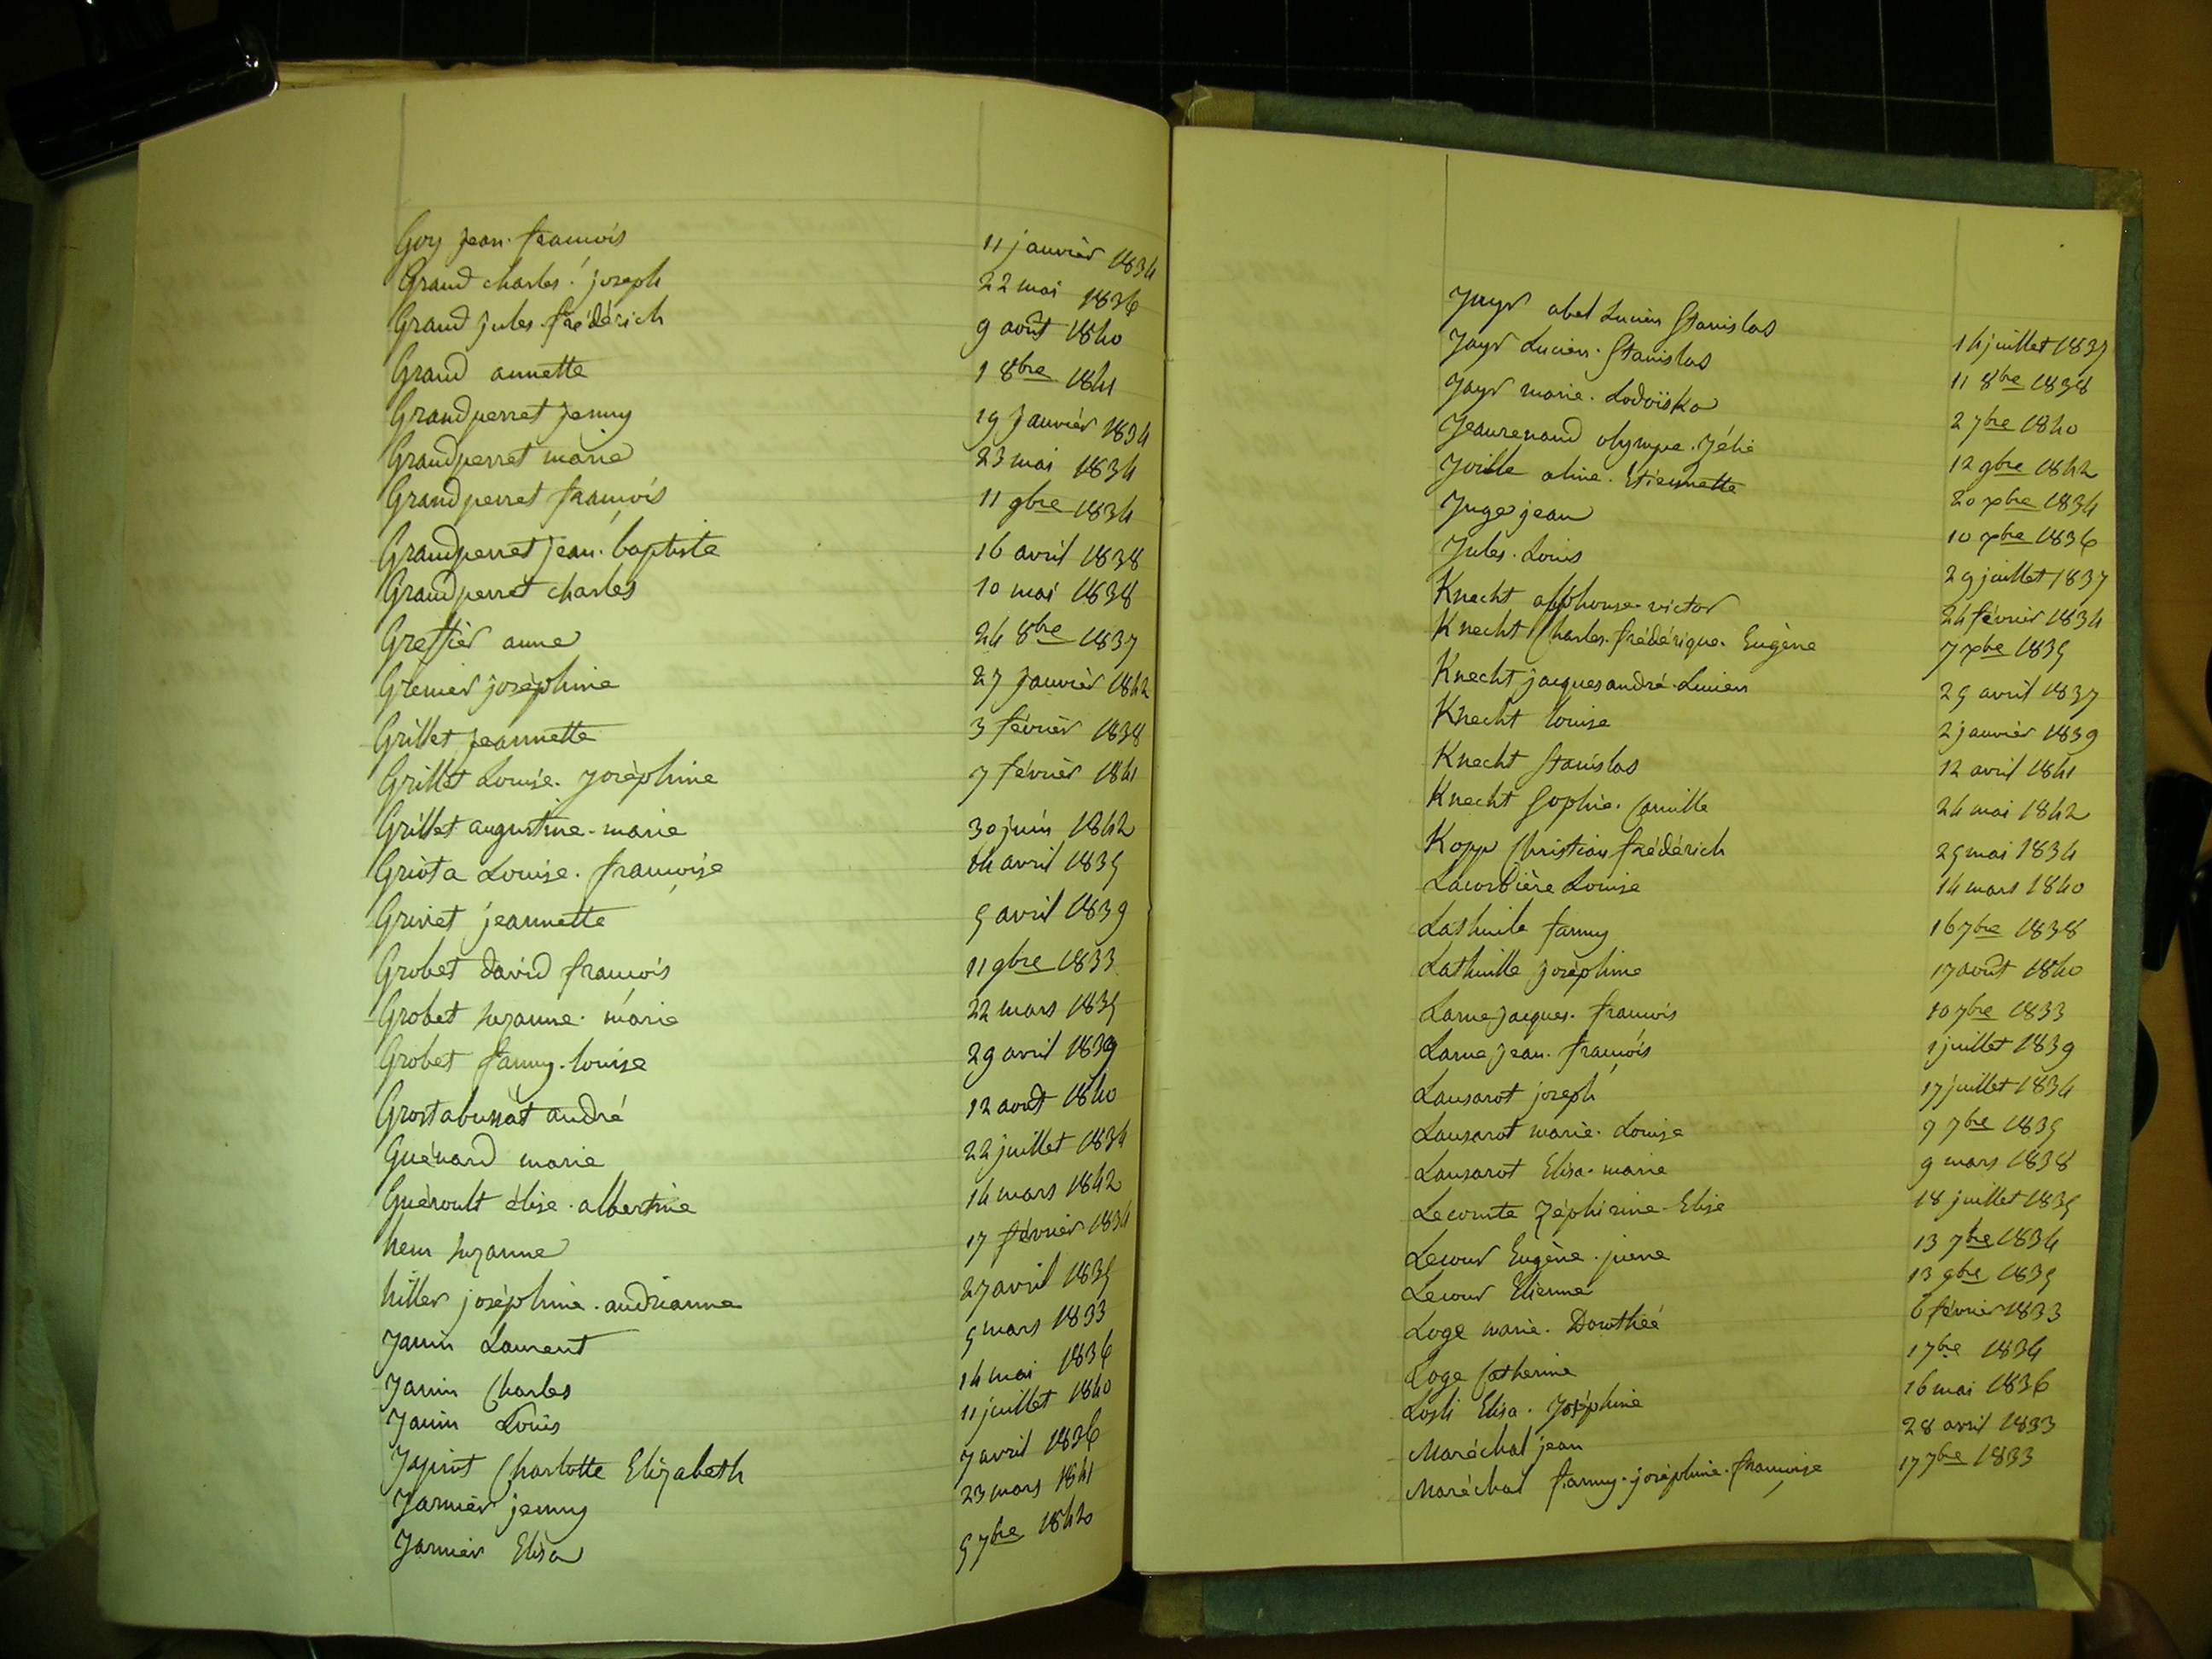 Goy Jean. francois 11 janvièr 1834
Grand charles. joseph 22 mai 1836
Grand jules. frédérich 9 août 1840
Grand annette 1 8bre 1841
Grandperret Jenny 19 Janvièr 1834
Grandperret marie 23 mai 1834
Grandperret francois 11 9bre 1834
Grandperret jean. baptiste 16 avril 1838
Grandperret charles 10 mai 1838
Greffier anne 24 8bre 1837
Grenier joséphine 27 Janvièr 1842
Grillet Jeannette 3 févrièr 1838
Grillet Louise. Joséphine 7 févrièr 1841
Grillet augustine. marie 30 juin 1842
Griota Louise. françoise 14 avril 1835
Grivet jeannette 5 avril 1839
Grobet david francois 11 9bre 1833
Grobet suzanne. marie 22 mars 1835
Grobet fanny. louise 29 avril 1839
Grostabussat andré 12 août 1840
Guénard marie 22 juillet 1834
Guéroult élise. albertine 14 mars 1842
heur suzanne 17 févrièr 1834
hiller joséphine. andrianne 27 avril 1835
Janin Laurent 5 mars 1833
Janin Charles 14 mai 1836
Janin Louis 11 juillet 1840
Japiot Charlotte Elizabeth 7 avril 1836
Jarnièr jenny 23 mars 1841
Jarnièr Elisa 5 7bre 1842
Jayr abel Lucien Stanislas 14 juillet 1837
Jayr Lucien. Stanislas 11 8bre 1838
Jayr marie. Lodoïska 2 7bre 1840
Jeanrenaud olympe. Zélie 12 9bre 1842
Joille aline. Etiennette 20 xbre 1834
Juge jean 10 xbre 1836
Jules. Louis 29 juillet 1837
Knecht alphonse. victor 24 février 1834
Knecht Charles. frédérique. Eugène 7 xbre 1835
Knecht jacques andré. Lucien 25 avril 1837
Knecht louise 2 janvièr 1839
Knecht Stanislas 12 avril 1841
Knecht Sophie. Camille 24 mai 1842
Kopp Christian frédérich 25 mai 1834
Lacordière Louise 14 mars 1840
Lathuile fanny 16 7bre 1838
Lathuille Joséphine 17 août 1840
Larue jacques. francois 10 7bre 1833
Larue Jean. francois 1 juillet 1839
Lausarot joseph 17 juillet 1834
Lausarot marie. Louise 9 7bre 1835
Lausarot Elisa. marie 9 mars 1838
Lecomte Zéphirine. Elise 18 juillet 1835
Lecour Eugène. pierre 13 7bre 1834
Lecour Etienne 13 9bre 1835
Loge marie. Dorothée 6 février 1833
Loge Catherine 1 7bre 1834
Losli Elisa. Joséphine 16 mai 1836
Maréchal jean 28 avril 1833
Maréchal fanny. joséphine. françoise 17 7bre 1833